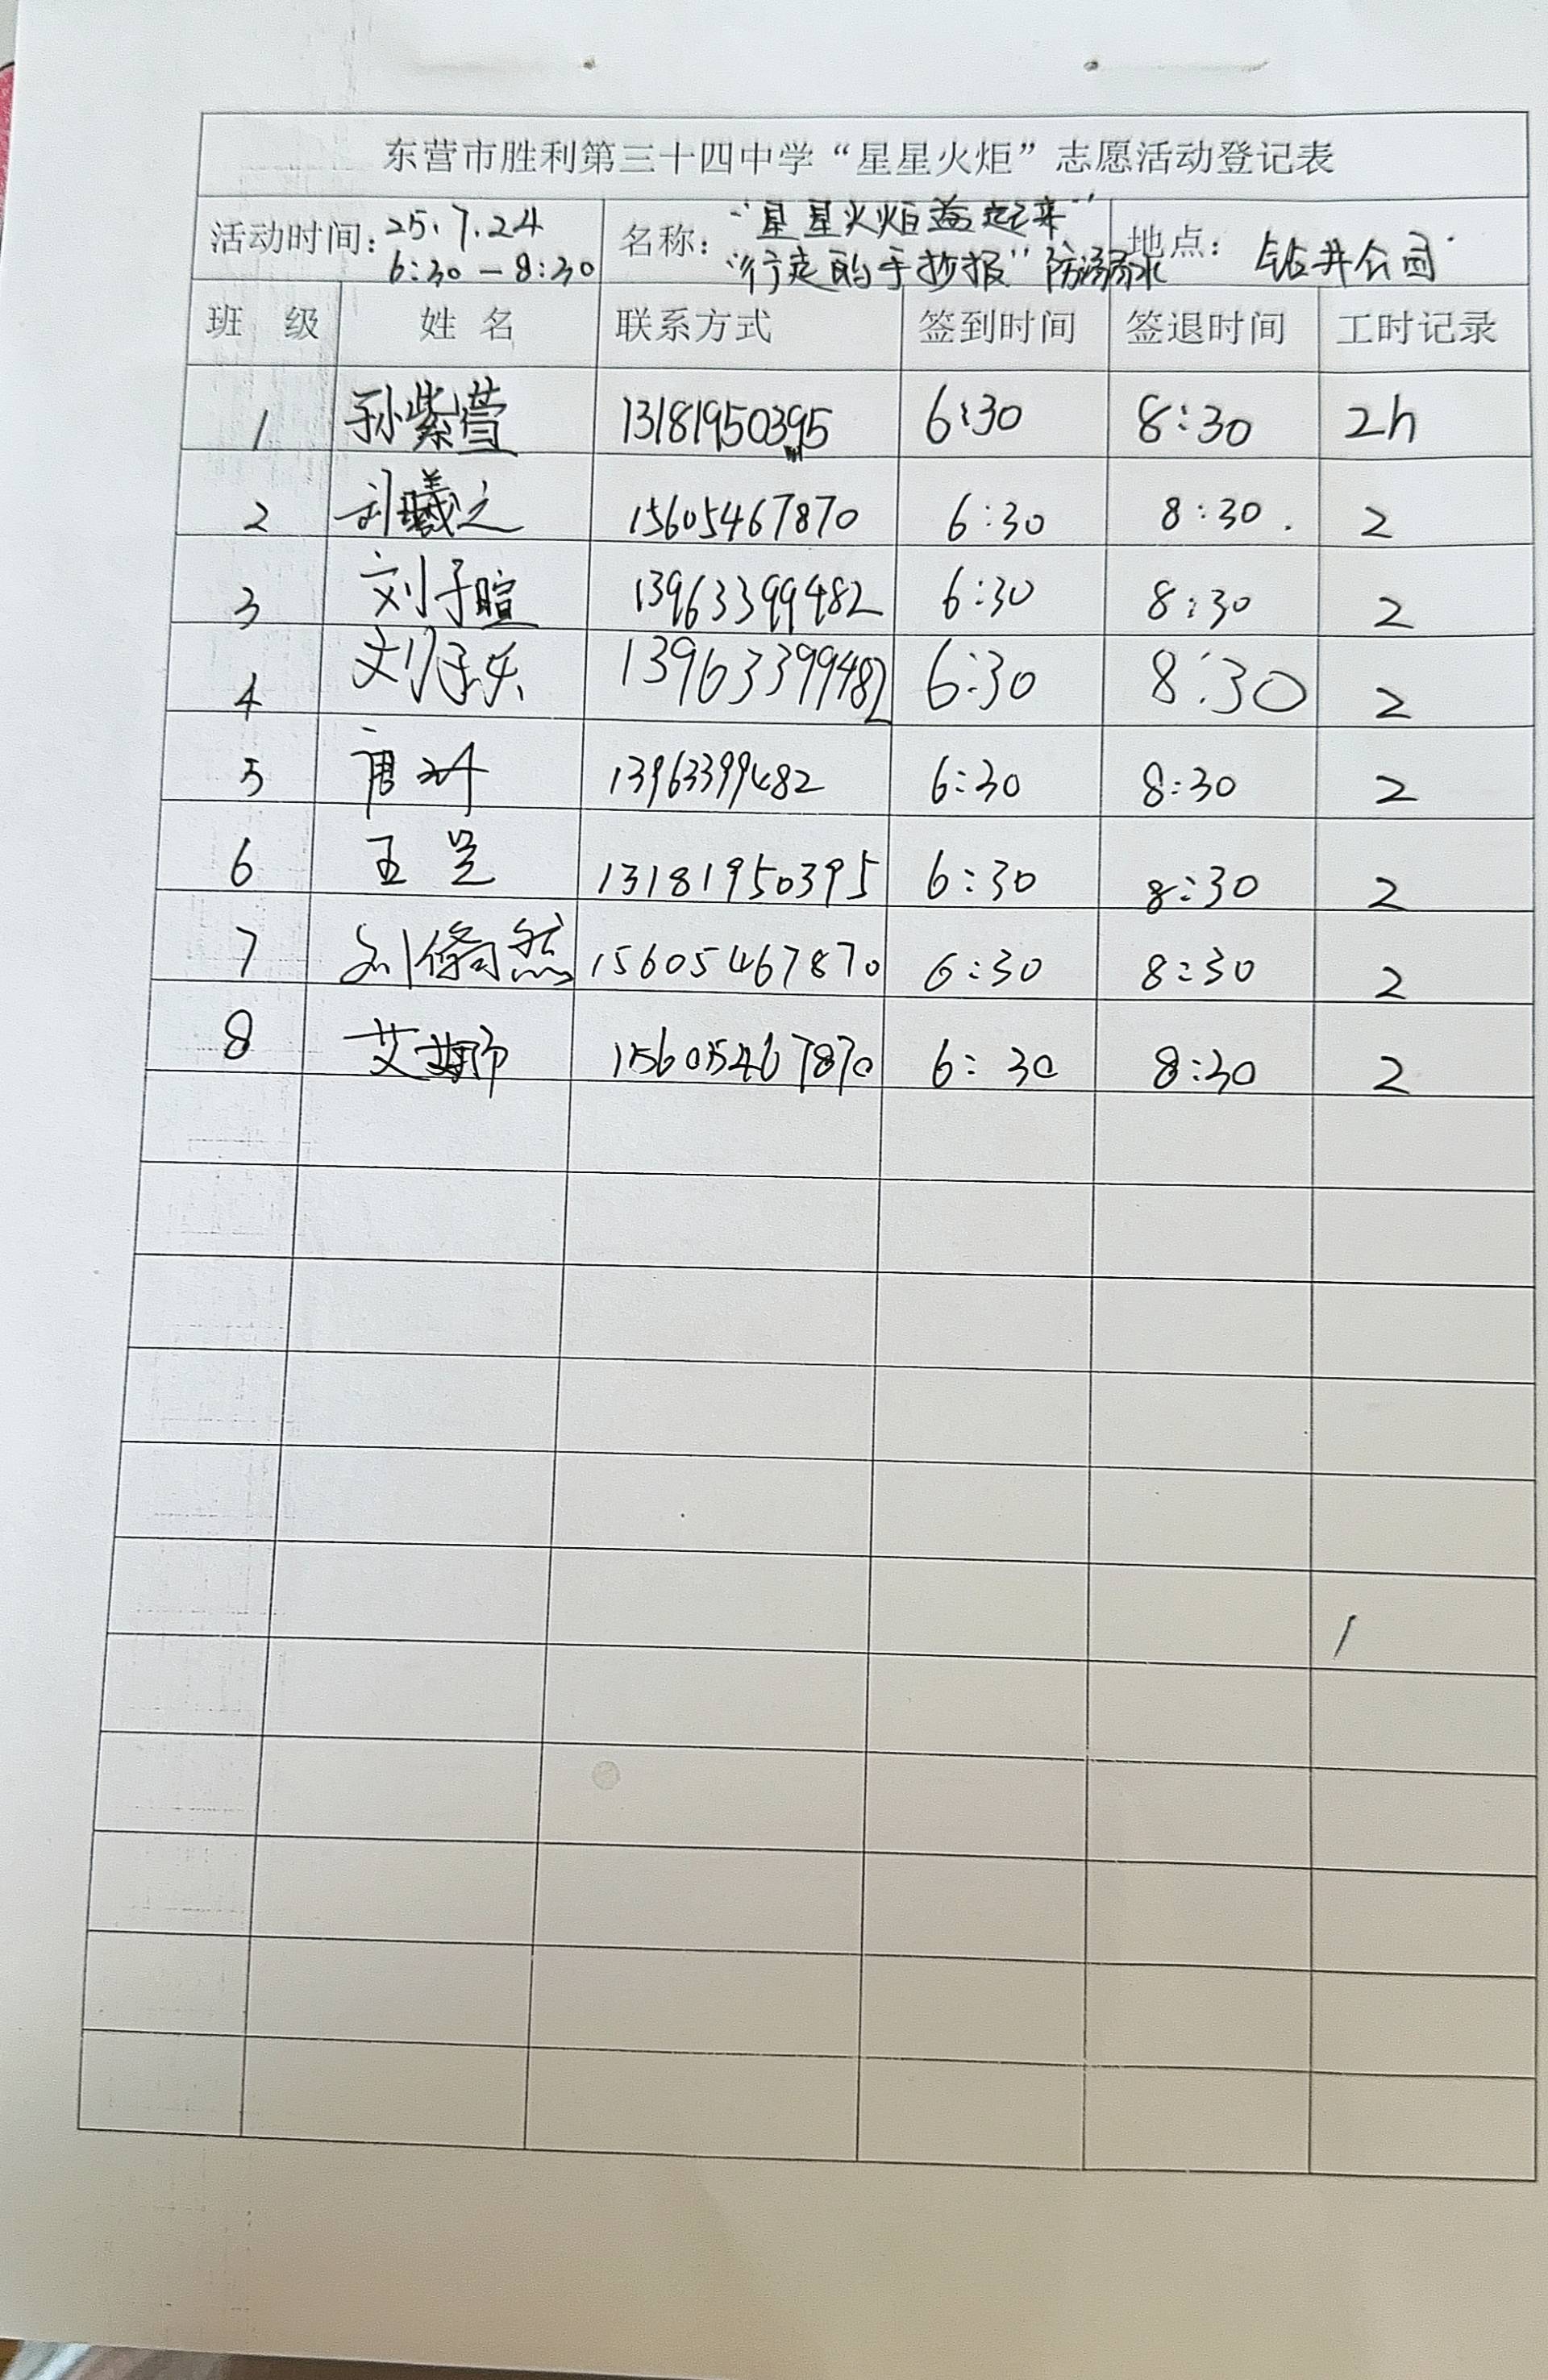 东营市胜利第三十四中学“星星火炬”志愿活动登记表
活动时间: 25.7.24 名称: “星星火炬益起来” 地点: 钻井公园
6:30-8:30 “行走的手抄报”防溺水
班 级 姓 名 联系方式 签到时间 签退时间 工时记录
1 孙紫萱 13181950395 6:30 8:30 2h
2 刘曦之 15605467870 6:30 8:30. 2
3 刘子暄 13963399482 6:30 8:30 2
4 刘子乐 13963399482 6:30 8:30 2
5 唐 13963399482 6:30 8:30 2
6 王 13181950395 6:30 8:30 2
7 刘脩然 15605467870 6:30 8:30 2
8 艾 15605467870 6:30 8:30 2